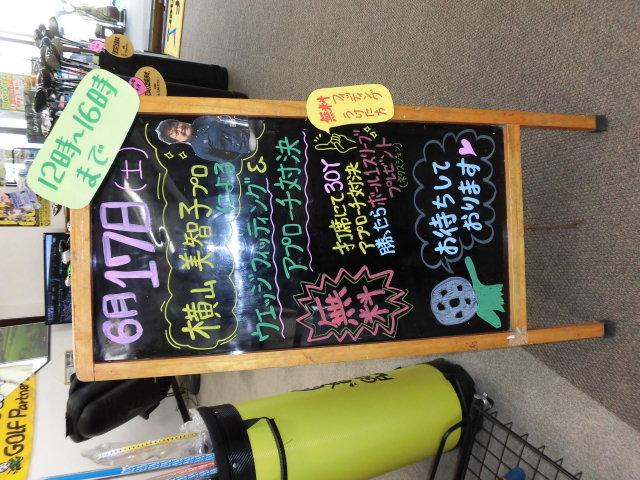 12時～16時
まで
6月17日(土)
横山 美智子プロ
による
ウエッジフィッティング &
アプローチ対決
無料
フィッティング
うけた方
打席にて30Y
アプローチ対決
勝ったらボール1スリーブ
プレゼント
無料
お待ちして
おります
GOLF Partner